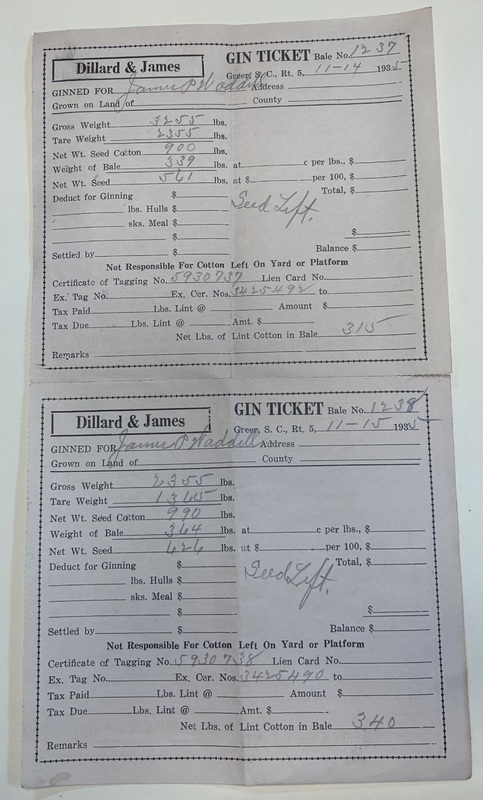 Dillard & James
GIN TICKET Bale No. 1237
Greer, S. C., Rt. 5, 11-14 1935
GINNED FOR James P Waddill Address
Grown on Land of County
Gross Weight 3255 lbs.
Tare Weight 2355 lbs.
Net Wt. Seed Cotton 900
Weight of Bale 339 lbs. at c per lbs., $
Net Wt. Seed 561 lbs. at $ per 100, $
Deduct for Ginning $ Total, $
Seed Left.
lbs. Hulls $
sks. Meal $
$ $
Settled by $ Balance $
Not Responsible For Cotton Left On Yard or Platform
Certificate of Tagging No. 5930737 Lien Card No.
Ex. Tag No. Ex. Cer. Nos. 3425492 to
Tax Paid Lbs. Lint @ Amount $
Tax Due Lbs. Lint @ Amt. $
Net Lbs. of Lint Cotton in Bale 315
Remarks
Dillard & James
GIN TICKET Bale No. 1238
Greer, S. C., Rt. 5, 11-15 1935
GINNED FOR James P Waddill Address
Grown on Land of County
Gross Weight 2355 lbs.
Tare Weight 1365 lbs.
Net Wt. Seed Cotton 990
Weight of Bale 364 lbs. at c per lbs., $
Net Wt. Seed 626 lbs. at $ per 100, $
Deduct for Ginning $ Total, $
Seed Left.
lbs. Hulls $
sks. Meal $
$ $
Settled by $ Balance $
Not Responsible For Cotton Left On Yard or Platform
Certificate of Tagging No. 5930738 Lien Card No.
Ex. Tag No. Ex. Cer. Nos. 3425490 to
Tax Paid Lbs. Lint @ Amount $
Tax Due Lbs. Lint @ Amt. $
Net Lbs. of Lint Cotton in Bale 340
Remarks